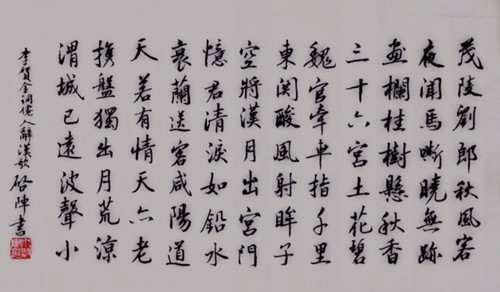 茂陵劉郎秋風客
夜聞馬嘶曉無跡
畫欄桂樹懸秋香
三十六宮土花碧
魏官牽車指千里
東関酸風射眸子
空將漢月出宮門
憶君清淚如鉛水
衰蘭送客咸陽道
天若有情天亦老
攜盤獨出月荒涼
渭城已遠波聲小
李賀金銅僊人辭漢歌 啟陣書